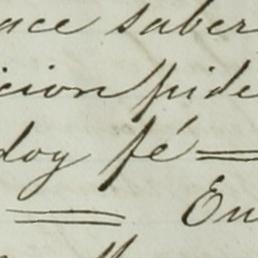 ace saber
icion pide
doy fé =
= En